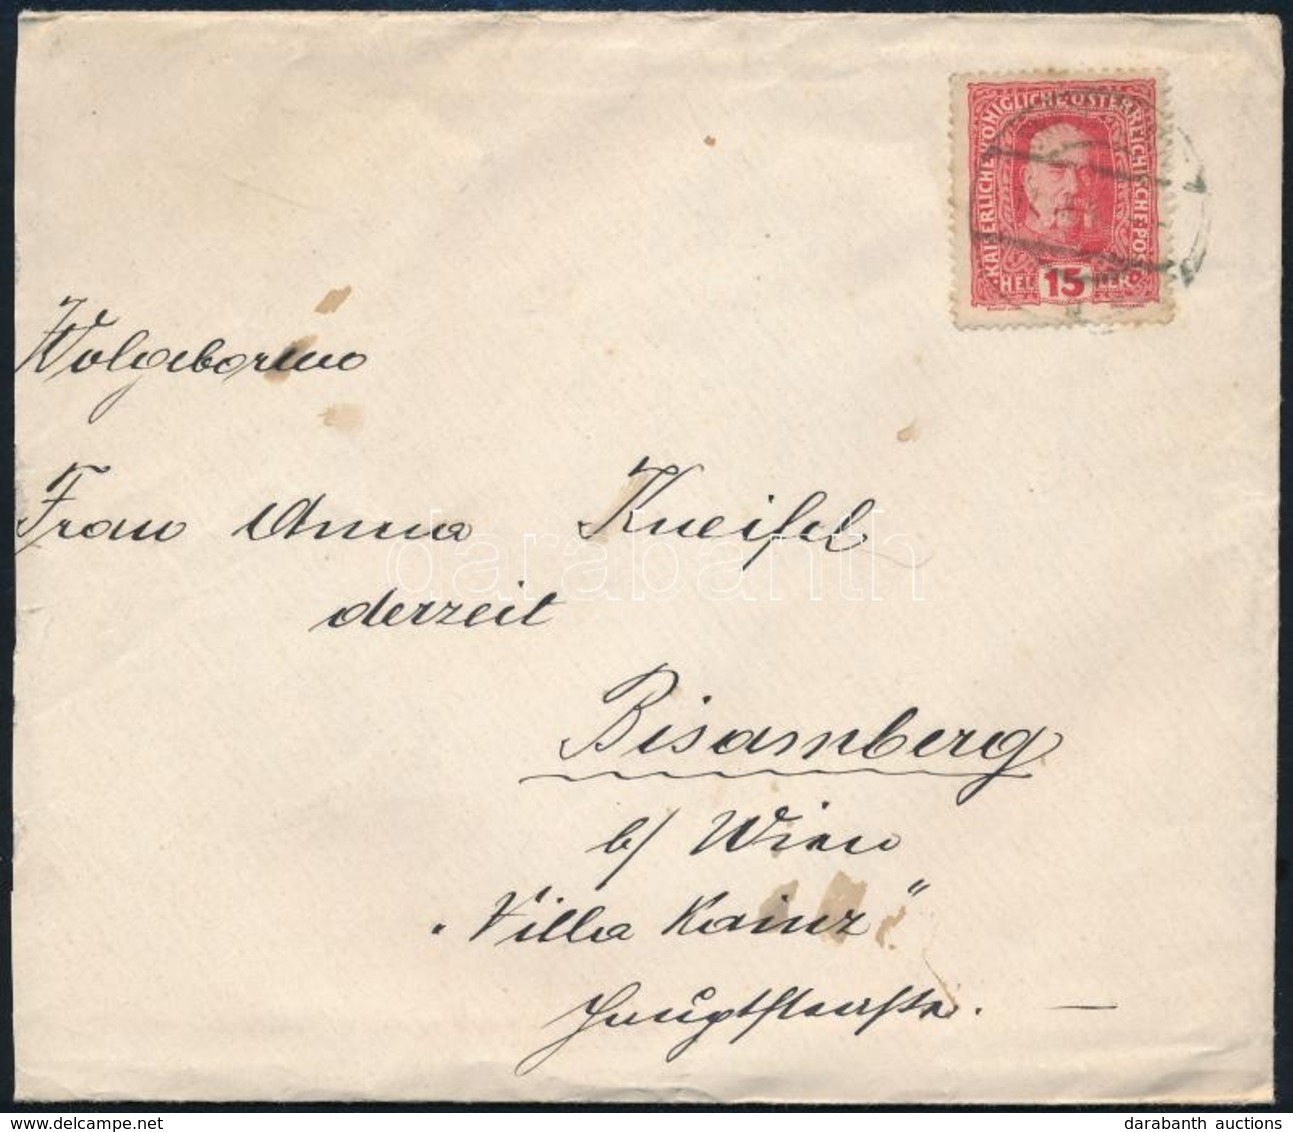 KAISERLICHE KÖNIGLICHE ÖSTERREICHISCHE POST
HELLER 15 HELLER
Wolgeboren
Frau Anna Kneifel
derzeit
Bisamberg
b/ Wien
"Villa Kainz"
Hauptstraße. —
darabanth
darabanth auctions